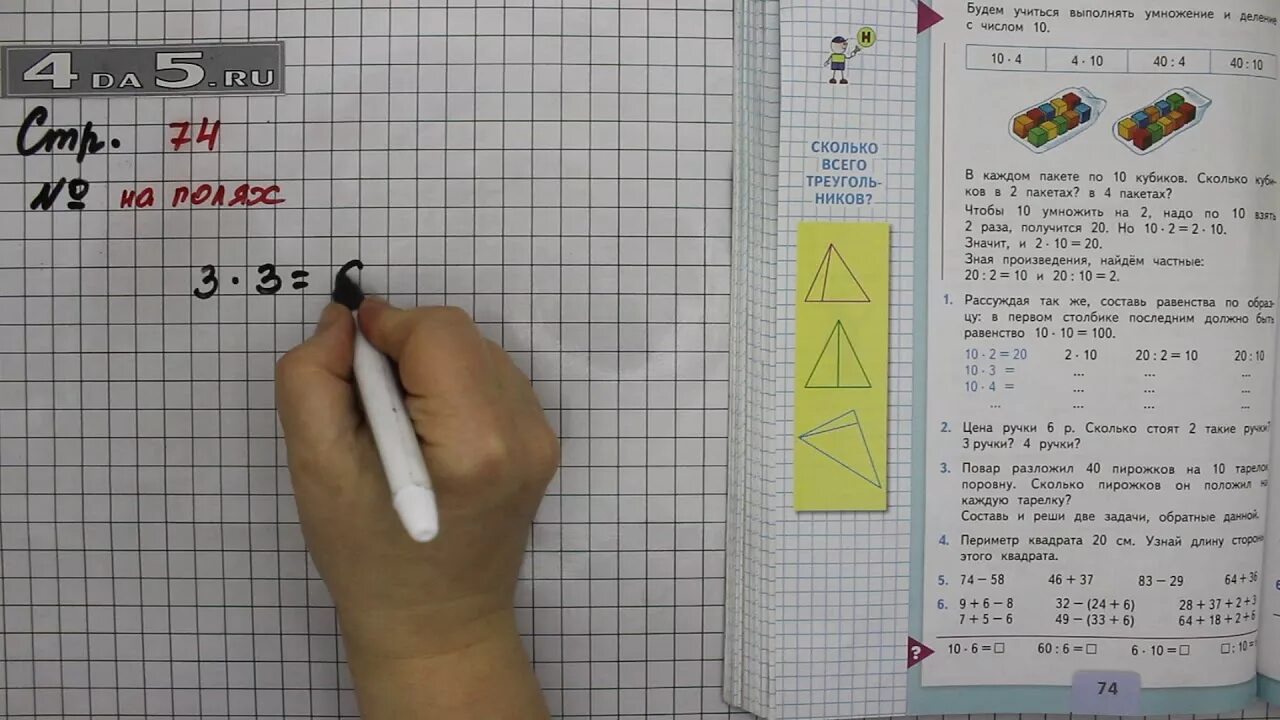 4DA5.RU
Стр. 74
№ на полях
3 · 3 =
Н
СКОЛЬКО
ВСЕГО
ТРЕУГОЛЬ-
НИКОВ?
Будем учиться выполнять умножение и деление
с числом 10.
10 · 4 4 · 10 40 : 4 40 : 10
В каждом пакете по 10 кубиков. Сколько куби-
ков в 2 пакетах? в 4 пакетах?
Чтобы 10 умножить на 2, надо по 10 взять
2 раза, получится 20. Но 10 · 2 = 2 · 10.
Значит, и 2 · 10 = 20.
Зная произведения, найдём частные:
20 : 2 = 10 и 20 : 10 = 2.
1. Рассуждая так же, составь равенства по образ-
цу: в первом столбике последним должно быть
равенство 10 · 10 = 100.
10 · 2 = 20 2 · 10 20 : 2 = 10 20 : 10
10 · 3 = ... ... ...
10 · 4 = ... ... ...
... ... ... ...
2. Цена ручки 6 р. Сколько стоят 2 такие ручки?
3 ручки? 4 ручки?
3. Повар разложил 40 пирожков на 10 тарелок
поровну. Сколько пирожков он положил на
каждую тарелку?
Составь и реши две задачи, обратные данной.
4. Периметр квадрата 20 см. Узнай длину стороны
этого квадрата.
5. 74 − 58 46 + 37 83 − 29 64 + 36
6. 9 + 6 − 8 32 − (24 + 6) 28 + 37 + 2 + 3
7 + 5 − 6 49 − (33 + 6) 64 + 18 + 2 + 6
? 10 · 6 = □ 60 : 6 = □ 6 · 10 = □ □ : 10 =
74